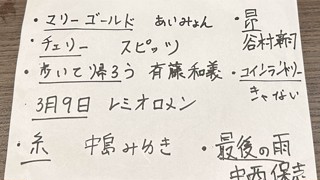 ・マリーゴールド あいみょん
・チェリー スピッツ
・歩いて帰ろう 斉藤和義
3月9日 レミオロメン
・糸 中島みゆき
・昴
谷村新司
・コインランドリー
きゃない
・最後の雨
中西保志